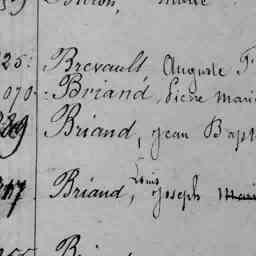 Marie
25: Brevault Auguste F
070 - Briand, Pierre Mari
Briand, Jean Bapt
Briand, Louis Joseph Mari